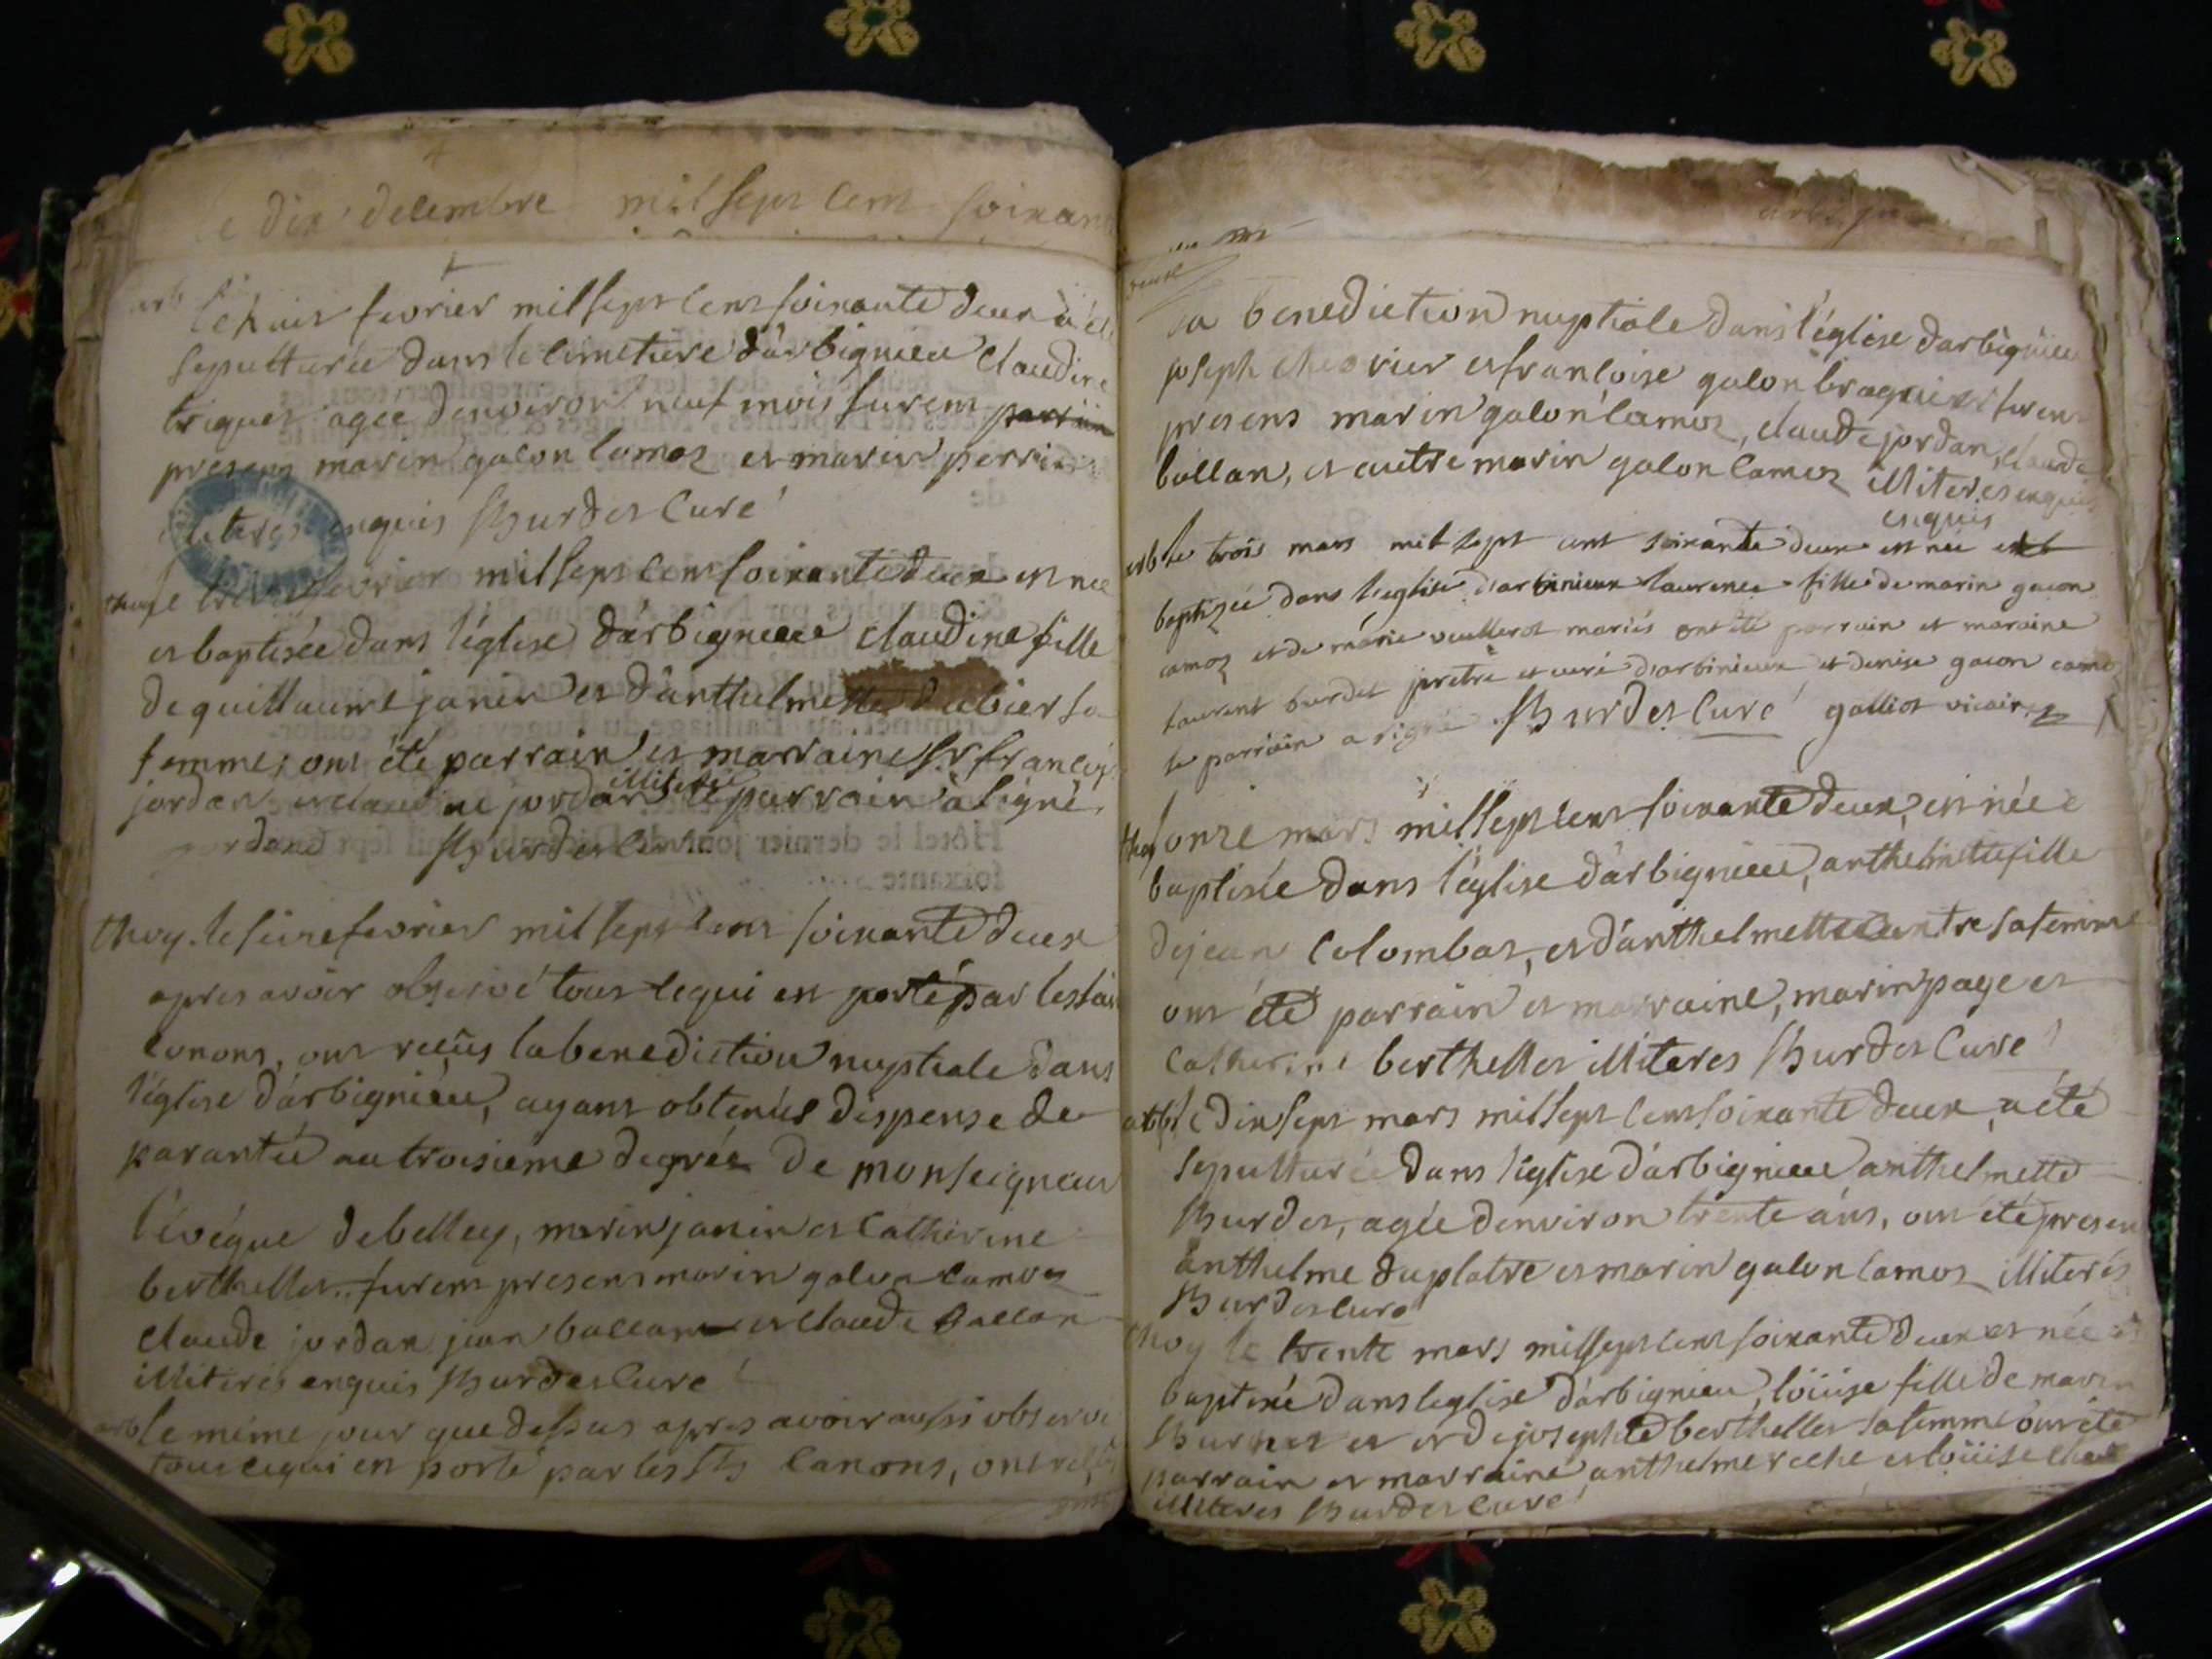 le dix decembre mil sept cent soixan
arb le huit fevrier mil sept cent soixante deux a été
sepulturée dans le cimetiere d'arbignieu Claudine
triquet agée denviron neuf mois furent parrain
presens marin gacon camoz et marin perrin
enquis Burdet Curé
thoy le fevrier mil sept cent soixante deux est née
et baptisée dans l'église d'arbignieu claudine fille
de guillaume janin et d'anthelmette dubier sa
femme, ont été parrain et marraine sr françois
illiterée
jordan et claudine jordan le parrain à signé,
jordane Burdet Curé
thoy. le seize fevrier mil sept cent soixante deux
apres avoir observé tout cequi est porté par les sai
canons, ont reçûs la benediction nuptiale dans
l'église d'arbignieu, ayant obtenûe dispense de
parantée au troisieme degrée de monseigneur
l'évéque de belley, marin janin et Catherine
berthellet. furent presens marin gacon camoz
claude jordan jean ballan et claude Ballan
illiterés enquis Burdet Curé
arb le méme jour que dessus apres avoir aussi observé
tout cequi est porté par les sts Canons, ont reçus
la benediction nuptiale dans l'église d'arbignieu
joseph chevrier et françoise gacon braquier furent
presens marin gacon camoz, claude jordan, claude
ballan, et autre marin gacon camoz illiterés enquis
enquis
arb le trois mars mil sept cent soixante deux est née et
baptizée dans l'eglise d'arbinieux laurence fille de marin gacon
camoz et de marie veuillerot mariés ont été parrain et maraine
laurent burdet pretre et curé d'arbinieux et denise gacon camoz
le parrain a signé Burdet Curé galliot vicaire
thoy onze mars mil sept cent soixante deux, est née e
baptisée dans l'église d'arbignieu, anthelmette fille
de jean Colombat, et d'anthelmette sa femme
ont été parrain et marraine, marin page et
Catherine berthellet illiteres Burdet Curé
arb le dix sept mars mil sept cent soixante deux, a été
sepulturée dans l'église d'arbignieu anthelmette
Burdet, agée denviron trente ans, ont été presen
anthelme duplatre et marin gacon camoz illiterés
Burdet Curé
thoy le trente mars mil sept cent soixante deux est née et
baptisée dans leglise d'arbignieu, loüise fille de marin
et de josephte berthellet sa femme ont été
parrain et marraine anthelme et loüise
illiteres Burdet Curé